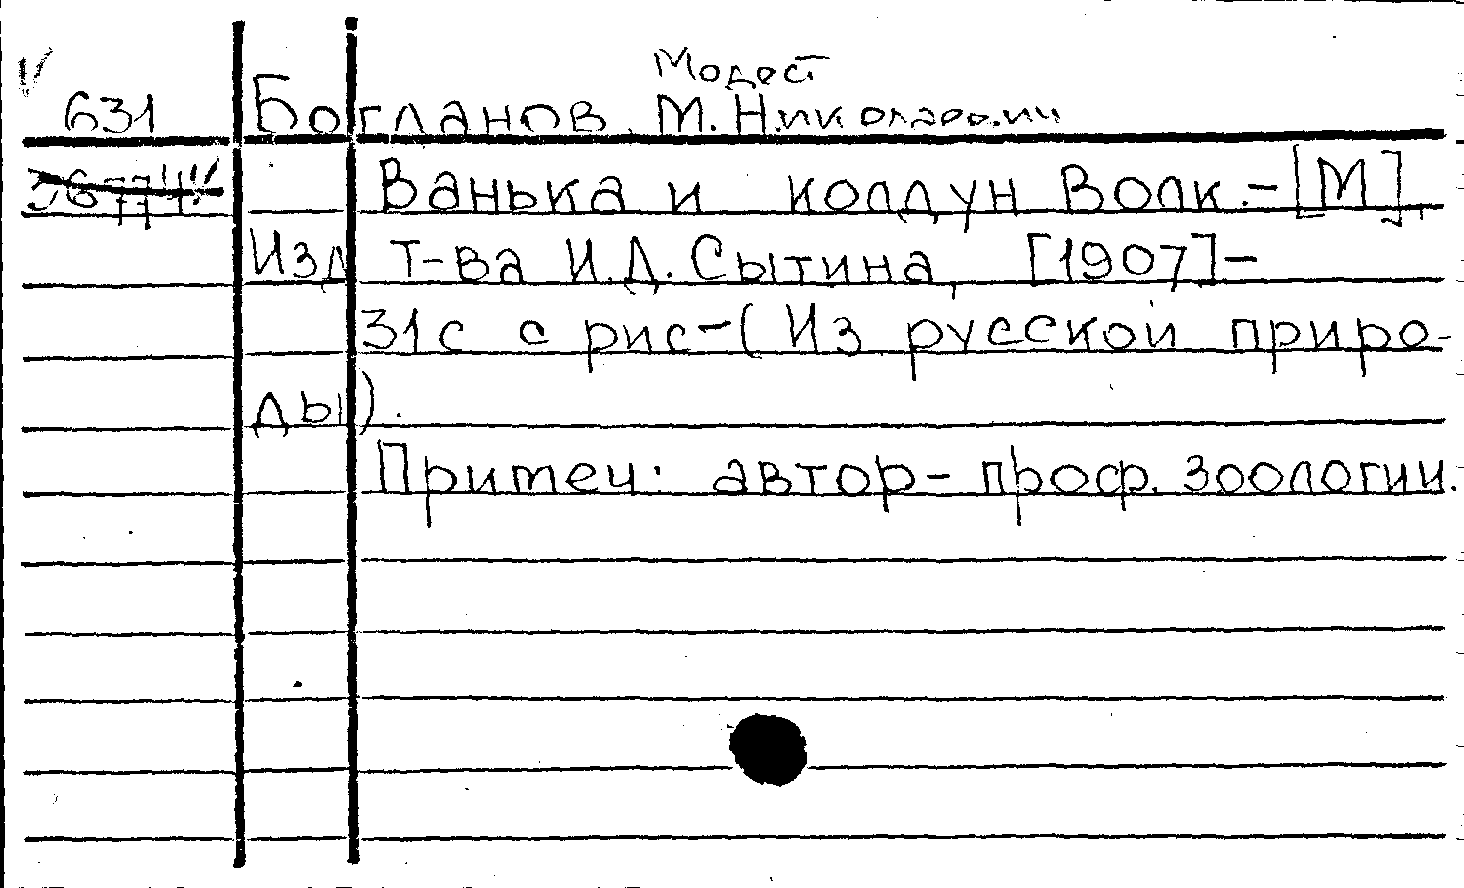 Модест
631 Богданов, М. Николаевич
Ванька и колдун Волк.-[М],
Изд Т-ва И.Д. Сытина, [1907]-
31с с рис-(Из русской приро-
ды).
Примеч: автор- проф. зоологии.